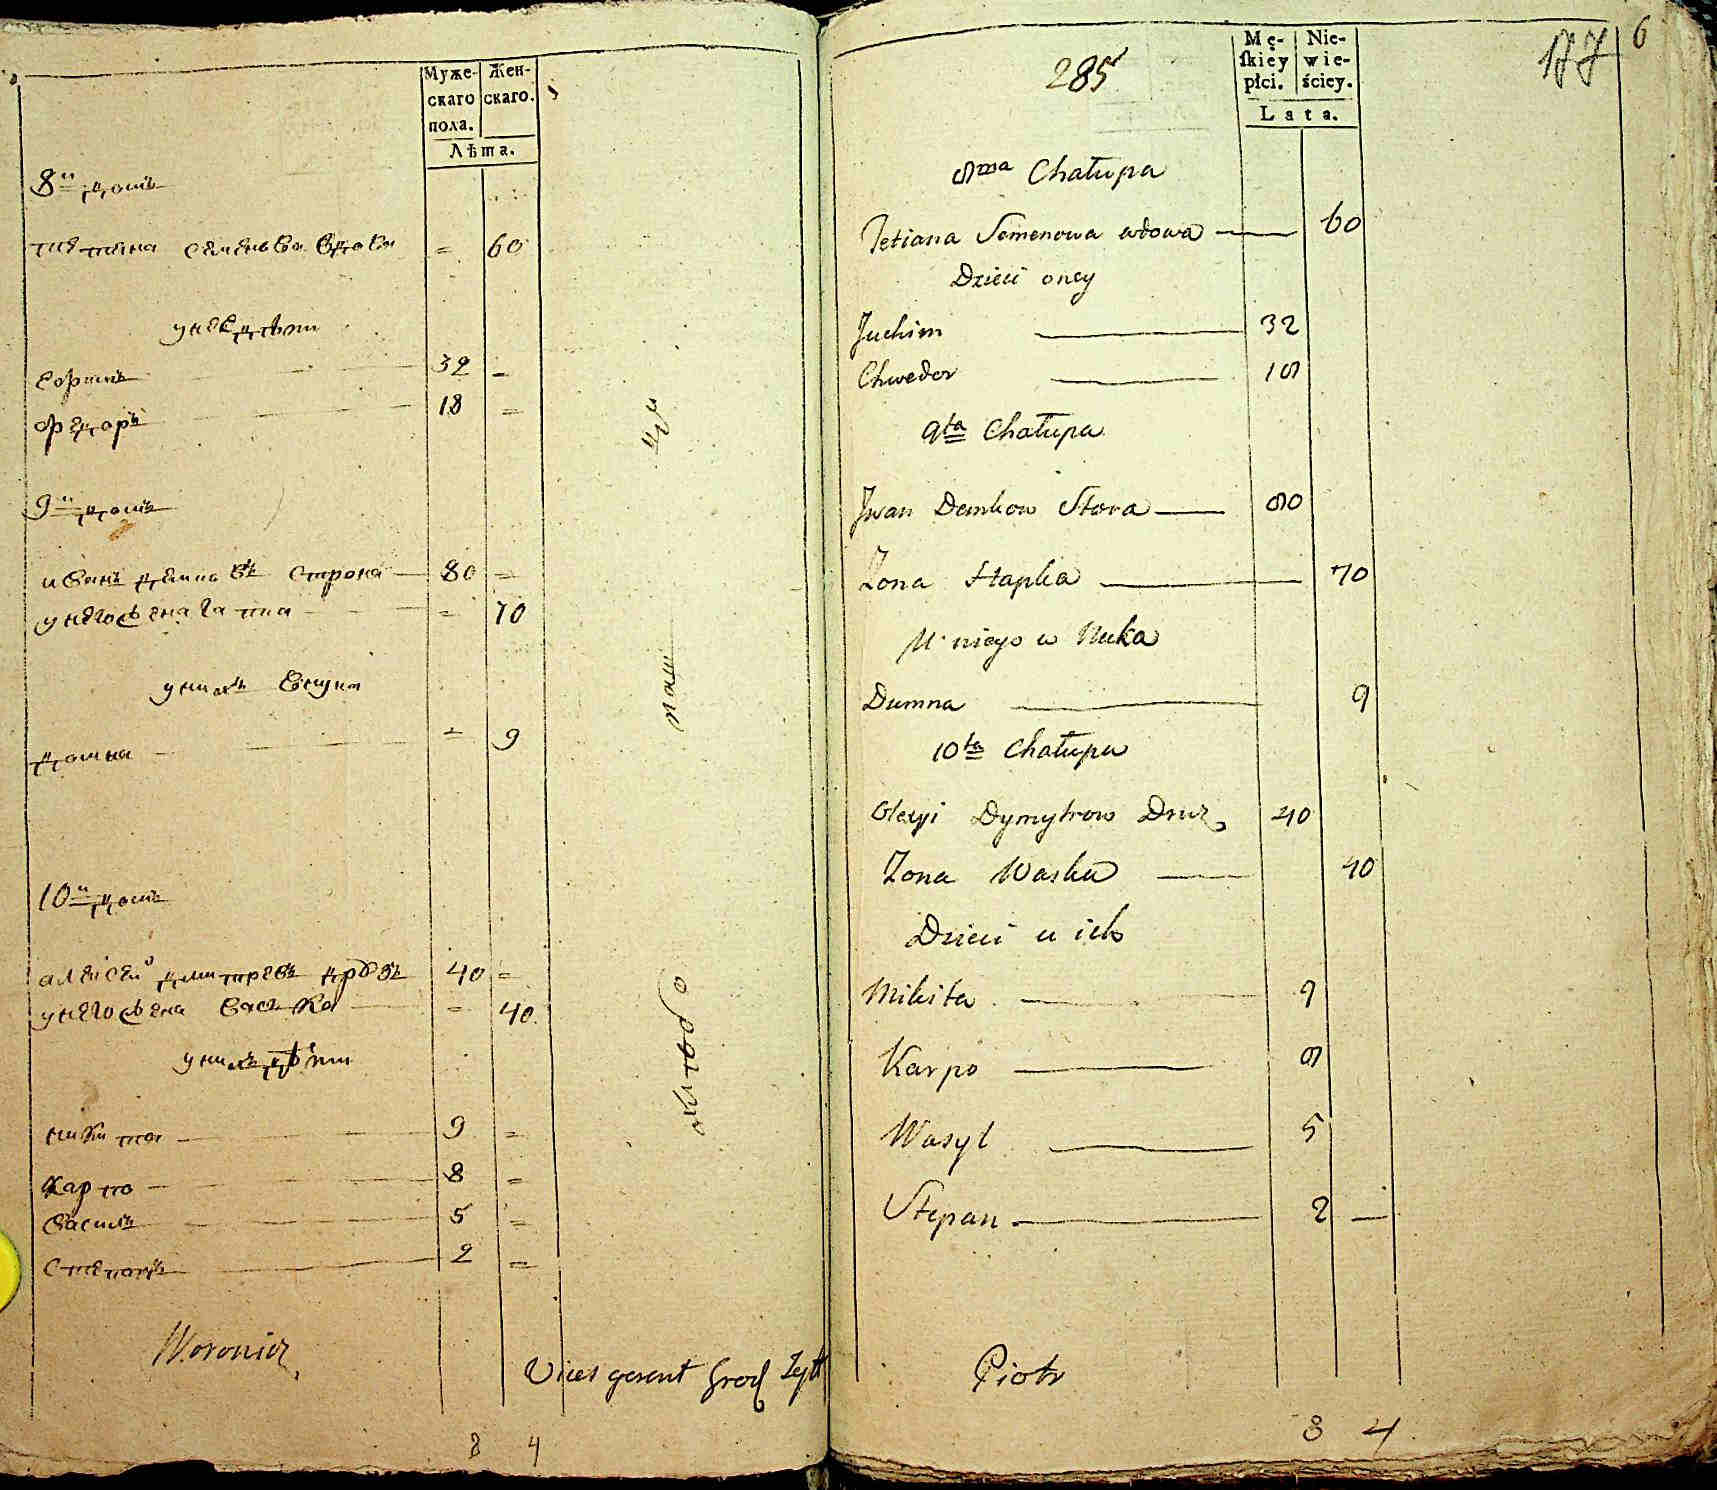 Муже-
скаго
пола.
Жен-
скаго.
Лѣта.
8й домъ
татiяна семенова вдова = 60
унее дѣти
ефимъ 32 =
федоръ 18 =
9й домъ
иванъ демковъ 80 =
унего жена гапка = 70
унихъ внука
домна = 9
10й домъ
алексей дмитревъ 40 =
унего жена васка = 40
унихъ дѣти
никита 9 =
карпо 8 =
василь 5 =
степанъ 2 =
Woronicz
Vices gerent Grod Żyt
8 4
285
177
6
Mę-
skiey
płci.
Nie-
wie-
ściey.
Lata.
8ma Chałupa
Tetiana Semenowa wdowa 60
Dzieci oney
Juchim 32
Chwedor 18
9ta Chałupa
Jwan Demkow Stora 80
Zona Hapka 70
U niego wnuka
Dumna 9
10ta Chałupa
Olexyi Dymytrow Druz 40
Zona Waska 40
Dzieci u ich
Mikita 9
Karpo 8
Wasyl 5
Stepan 2 —
Piotr
8 4